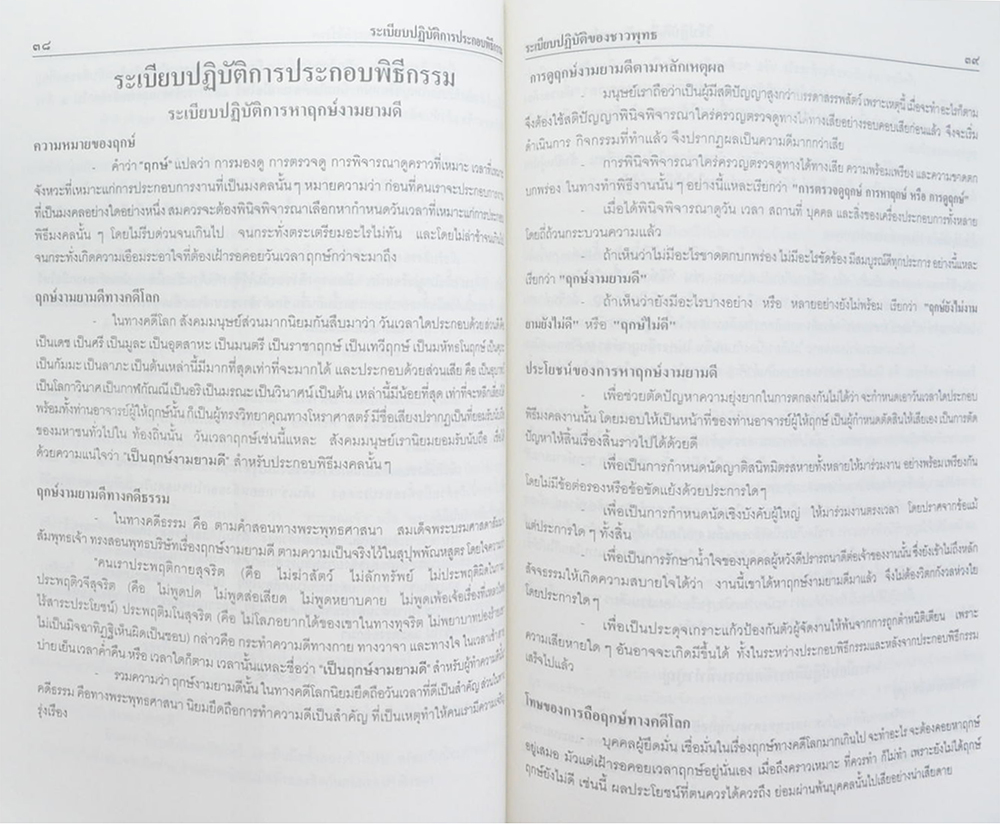 ๓๘
ระเบียบปฏิบัติการประกอบพิธีกรรม
ระเบียบปฏิบัติการประกอบพิธีกรรม
ระเบียบปฏิบัติการหาฤกษ์งามยามดี
ความหมายของฤกษ์
- คำว่า "ฤกษ์" แปลว่า การมองดู การตรวจดู การพิจารณาดูคราวที่เหมาะ เวลาที่เหมาะ
จังหวะที่เหมาะแก่การประกอบการงานที่เป็นมงคลนั้นๆ หมายความว่า ก่อนที่คนเราจะประกอบการงาน
ที่เป็นมงคลอย่างใดอย่างหนึ่ง สมควรจะต้องพินิจพิจารณาเลือกหากำหนดวันเวลาที่เหมาะแก่การประกอบ
พิธีมงคลนั้น ๆ โดยไม่รีบด่วนจนเกินไป จนกระทั่งตระเตรียมอะไรไม่ทัน และโดยไม่ล่าช้าจนเกินไป
จนกระทั่งเกิดความเอือมระอาใจที่ต้องเฝ้ารอคอยวันเวลาฤกษ์กว่าจะมาถึง
ฤกษ์งามยามดีทางคดีโลก
- ในทางคดีโลก สังคมมนุษย์ส่วนมากนิยมกันสืบมาว่า วันเวลาใดประกอบด้วยส่วนดี คือ
เป็นเดช เป็นศรี เป็นมูละ เป็นอุตสาหะ เป็นมนตรี เป็นราชาฤกษ์ เป็นเทวีฤกษ์ เป็นมหัทธโนฤกษ์
เป็นกัมมะ เป็นลาภะ เป็นต้นเหล่านี้มีมากที่สุดเท่าที่จะมากได้ และประกอบด้วยส่วนเสีย คือ
เป็นโลกาวินาศ เป็นกาฬกัณณี เป็นอริ เป็นมรณะ เป็นวินาศน์ เป็นต้น เหล่านี้มีน้อยที่สุด เท่าที่จะหลีกเลี่ยงได้
พร้อมทั้งท่านอาจารย์ผู้ให้ฤกษ์นั้น ก็เป็นผู้ทรงวิทยาคุณทางโหราศาสตร์ มีชื่อเสียงปรากฏเป็นที่ยอมรับนับถือ
ของมหาชนทั่วไปใน ท้องถิ่นนั้น วันเวลาฤกษ์เช่นนี้แหละ สังคมมนุษย์เรานิยมยอมรับนับถือ
ด้วยความแน่ใจว่า "เป็นฤกษ์งามยามดี" สำหรับประกอบพิธีมงคลนั้นๆ
ฤกษ์งามยามดีทางคดีธรรม
- ในทางคดีธรรม คือ ตามคำสอนทางพระพุทธศาสนา สมเด็จพระบรมศาสดาสัมมา
สัมพุทธเจ้า ทรงสอนพุทธบริษัทเรื่องฤกษ์งามยามดี ตามความเป็นจริงไว้ในสุปุพพัณหสูตร โดยใจความว่า
"คนเราประพฤติกายสุจริต (คือ ไม่ฆ่าสัตว์ ไม่ลักทรัพย์ ไม่ประพฤติผิดในกาม)
ประพฤติวจีสุจริต (คือ ไม่พูดปด ไม่พูดส่อเสียด ไม่พูดหยาบคาย ไม่พูดเพ้อเจ้อเรื่องที่เหลวไหล
ไร้สาระประโยชน์) ประพฤติมโนสุจริต (คือ ไม่โลภอยากได้ของเขาในทางทุจริต ไม่พยาบาทปองร้าย
ไม่เป็นมิจฉาทิฏฐิเห็นผิดเป็นชอบ) กล่าวคือ กระทำความดีทางกาย ทางวาจา และทางใจ ในเวลาเช้า
บ่ายเย็นเวลาค่ำคืน หรือ เวลาใดก็ตาม เวลานั้นแหละชื่อว่า "เป็นฤกษ์งามยามดี" สำหรับผู้ทำความดีนั้น
รวมความว่า ฤกษ์งามยามดีนั้น ในทางคดีโลกนิยมยึดถือวันเวลาที่ดีเป็นสำคัญ ส่วนในทาง
คดีธรรม คือทางพระพุทธศาสนา นิยมยึดถือการทำความดีเป็นสำคัญ ที่เป็นเหตุทำให้คนเรามีความเจริญ
รุ่งเรือง
ระเบียบปฏิบัติของชาวพุทธ
๓๙
การดูฤกษ์งามยามดีตามหลักเหตุผล
- มนุษย์เราถือว่าเป็นผู้มีสติปัญญาสูงกว่าบรรดาสรรพสัตว์ เพราะเหตุนี้ เมื่อจะทำอะไรก็ตาม
จึงต้องใช้สติปัญญาพินิจพิจารณาใคร่ครวญตรวจดูทางได้ทางเสียอย่างรอบคอบเสียก่อนแล้ว จึงจะเริ่ม
ดำเนินการ กิจกรรมที่ทำแล้ว จึงปรากฏผลเป็นความดีมากกว่าเสีย
- การพินิจพิจารณาใคร่ครวญตรวจดูทางได้ทางเสีย ความพร้อมเพรียง และความขาดตก
บกพร่อง ในทางทำพิธีงานนั้น ๆ อย่างนี้แหละเรียกว่า "การตรวจดูฤกษ์ การหาฤกษ์ หรือ การดูฤกษ์"
- เมื่อได้พินิจพิจารณาดูวัน เวลา สถานที่ บุคคล และสิ่งของเครื่องประกอบการทั้งหลาย
โดยถี่ถ้วนกระบวนความแล้ว
- ถ้าเห็นว่าไม่มีอะไรขาดตกบกพร่อง ไม่มีอะไรขัดข้อง มีสมบูรณ์ดีทุกประการ อย่างนี้แหละ
เรียกว่า "ฤกษ์งามยามดี"
- ถ้าเห็นว่ายังมีอะไรบางอย่าง หรือ หลายอย่างยังไม่พร้อม เรียกว่า "ฤกษ์ยังไม่งาม
ยามยังไม่ดี" หรือ "ฤกษ์ไม่ดี"
ประโยชน์ของการหาฤกษ์งามยามดี
- เพื่อช่วยตัดปัญหาความยุ่งยากในการตกลงกันไม่ได้ว่า จะกำหนดเอาวันเวลาใดประกอบ
พิธีมงคลงานนั้น โดยมอบให้เป็นหน้าที่ของท่านอาจารย์ผู้ให้ฤกษ์ เป็นผู้กำหนดตัดสินให้เสียเอง เป็นการตัด
ปัญหาให้สิ้นเรื่องสิ้นราวไปได้ด้วยดี
- เพื่อเป็นการกำหนดนัดญาติสนิทมิตรสหายทั้งหลายให้มาร่วมงาน อย่างพร้อมเพรียงกัน
โดยไม่มีข้อต่อรองหรือข้อขัดแย้งด้วยประการใดๆ
- เพื่อเป็นการกำหนดนัดเชิงบังคับผู้ใหญ่ ให้มาร่วมงานตรงเวลา โดยปราศจากข้อแม้
แต่ประการใด ๆ ทั้งสิ้น
- เพื่อเป็นการรักษาน้ำใจของบุคคลผู้หวังดีปรารถนาดีต่อเจ้าของงานนั้น ซึ่งยังเข้าไม่ถึงหลัก
สัจจธรรมให้เกิดความสบายใจได้ว่า งานนี้เขาได้หาฤกษ์งามยามดีมาแล้ว จึงไม่ต้องวิตกกังวลห่วงใย
โดยประการใดๆ
- เพื่อเป็นประดุจเกราะแก้วป้องกันตัวผู้จัดงานให้พ้นจากการถูกตำหนิติเตียน เพราะ
ความเสียหายใด ๆ อันอาจจะเกิดมีขึ้นได้ ทั้งในระหว่างประกอบพิธีกรรมและหลังจากประกอบพิธีกรรม
เสร็จไปแล้ว
โทษของการถือฤกษ์ทางคดีโลก
- บุคคลผู้ยึดมั่น เชื่อมั่นในเรื่องฤกษ์ทางคดีโลกมากเกินไป จะทำอะไร จะต้องคอยหาฤกษ์
อยู่เสมอ มัวแต่เฝ้ารอคอยเวลาฤกษ์อยู่นั่นเอง เมื่อถึงคราวเหมาะ ที่ควรทำ ก็ไม่ทำ เพราะยังไม่ได้ฤกษ์
ฤกษ์ยังไม่ดี เช่นนี้ ผลประโยชน์ที่ตนควรได้ควรถึง ย่อมผ่านพ้นบุคคลนั้นไปเสียอย่างน่าเสียดาย